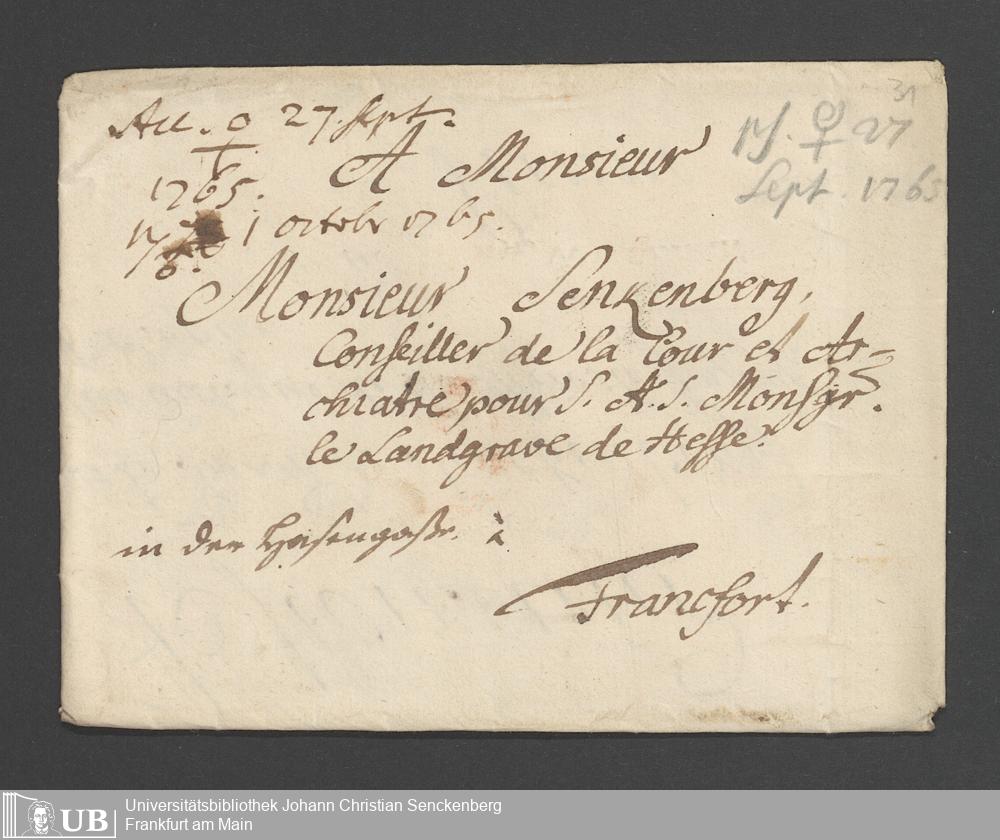 Acc. ♀ 27. Sept.
1765.
31
ps. ♀ 27
Sept. 1765
A Monsieur
1 Octobr 1765.
Monsieur Senkenberg,
Conseiller de la Cour et Ar-
chiatre pour S. A. S. Monsgr.
le Landgrave de Hesse.
in der Hasengaße. à
Francfort.
UB
Universitätsbibliothek Johann Christian Senckenberg
Frankfurt am Main